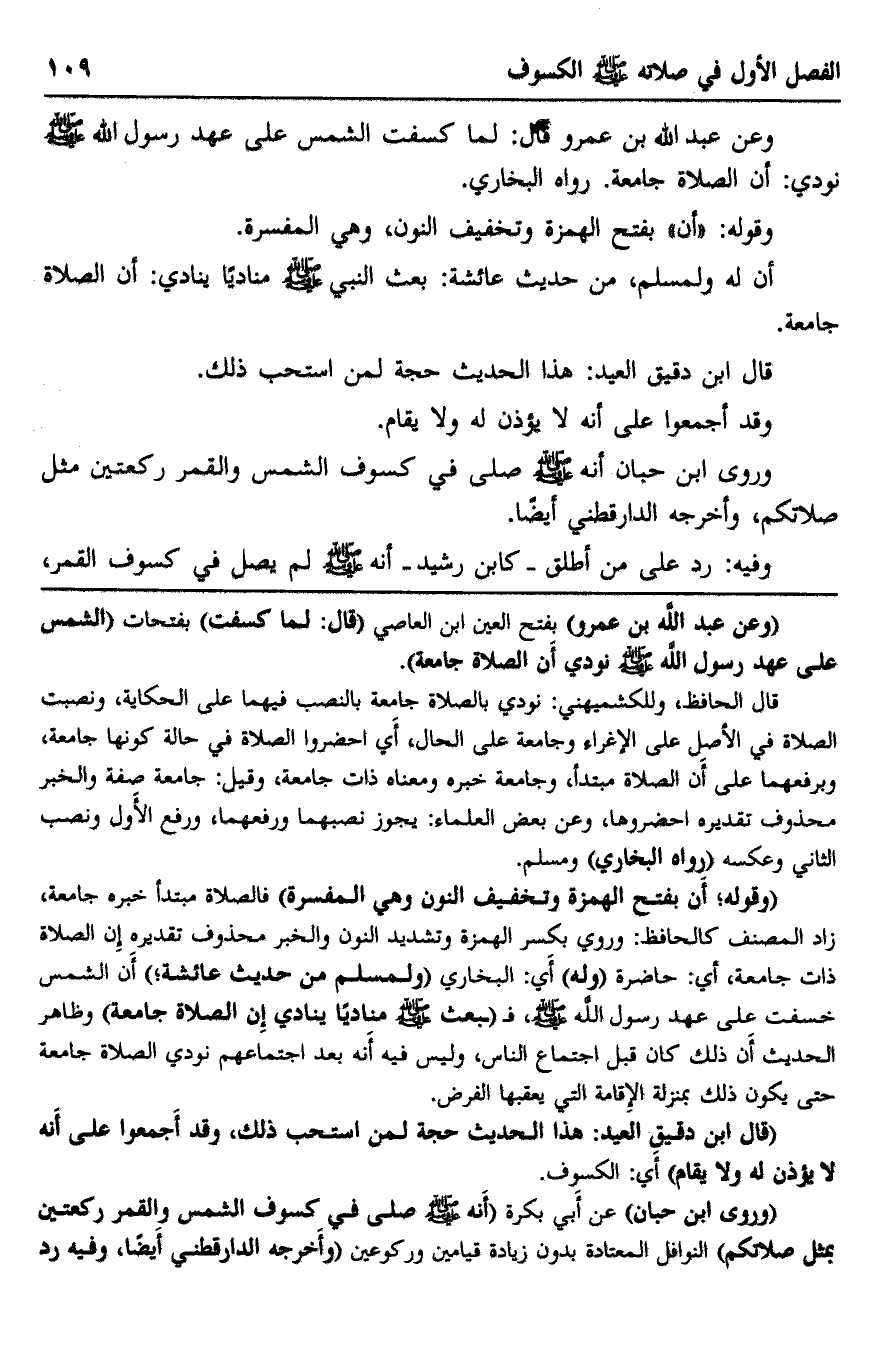 الفصل الأول في صلاته ﷺ الكسوف ١٠٩
وعن عبد الله بن عمرو قال: لما كسفت الشمس على عهد رسول الله ﷺ
نودي: أن الصلاة جامعة. رواه البخاري.
وقوله: «أن» بفتح الهمزة وتخفيف النون، وهي المفسرة.
أن له ولمسلم، من حديث عائشة: بعث النبي ﷺ مناديًا ينادي: أن الصلاة
جامعة.
قال ابن دقيق العيد: هذا الحديث حجة لمن استحب ذلك.
وقد أجمعوا على أنه لا يؤذن له ولا يقام.
وروى ابن حبان أنه ﷺ صلى في كسوف الشمس والقمر ركعتين مثل
صلاتكم، وأخرجه الدارقطني أيضًا.
وفيه: رد على من أطلق ـ كابن رشيد ـ أنه ﷺ لم يصل في كسوف القمر،
(وعن عبد اللَّه بن عمرو) بفتح العين ابن العاصي (قال: لما كسفت) بفتحات (الشمس
على عهد رسول اللَّه ﷺ نودي أن الصلاة جامعة).
قال الحافظ، وللكشميهني: نودي بالصلاة جامعة بالنصب فيهما على الحكاية، ونصبت
الصلاة في الأصل على الإغراء وجامعة على الحال، أي احضروا الصلاة في حالة كونها جامعة،
وبرفعهما على أن الصلاة مبتدأ، وجامعة خبره ومعناه ذات جامعة، وقيل: جامعة صفة والخبر
محذوف تقديره احضروها، وعن بعض العلماء: يجوز نصبهما ورفعهما، ورفع الأول ونصب
الثاني وعكسه (رواه البخاري) ومسلم.
(وقوله؛ أن بفتح الهمزة وتخفيف النون وهي المفسرة) فالصلاة مبتدأ خبره جامعة،
زاد المصنف كالحافظ: وروي بكسر الهمزة وتشديد النون والخبر محذوف تقديره إن الصلاة
ذات جامعة، أي: حاضرة (وله) أي: البخاري (ولمسلم من حديث عائشة؛) أن الشمس
خسفت على عهد رسول اللَّه ﷺ، فـ (ـبعث ﷺ مناديًا ينادي إن الصلاة جامعة) وظاهر
الحديث أن ذلك كان قبل اجتماع الناس، وليس فيه أنه بعد اجتماعهم نودي الصلاة جامعة
حتى يكون ذلك بمنزلة الإقامة التي يعقبها الفرض.
(قال ابن دقيق العيد: هذا الحديث حجة لمن استحب ذلك، وقد أجمعوا على أنه
لا يؤذن له ولا يقام) أي: الكسوف.
(وروى ابن حبان) عن أبي بكرة (أنه ﷺ صلى في كسوف الشمس والقمر ركعتين
بمثل صلاتكم) النوافل المعتادة بدون زيادة قيامين وركوعين (وأخرجه الدارقطني أيضًا، وفيه رد